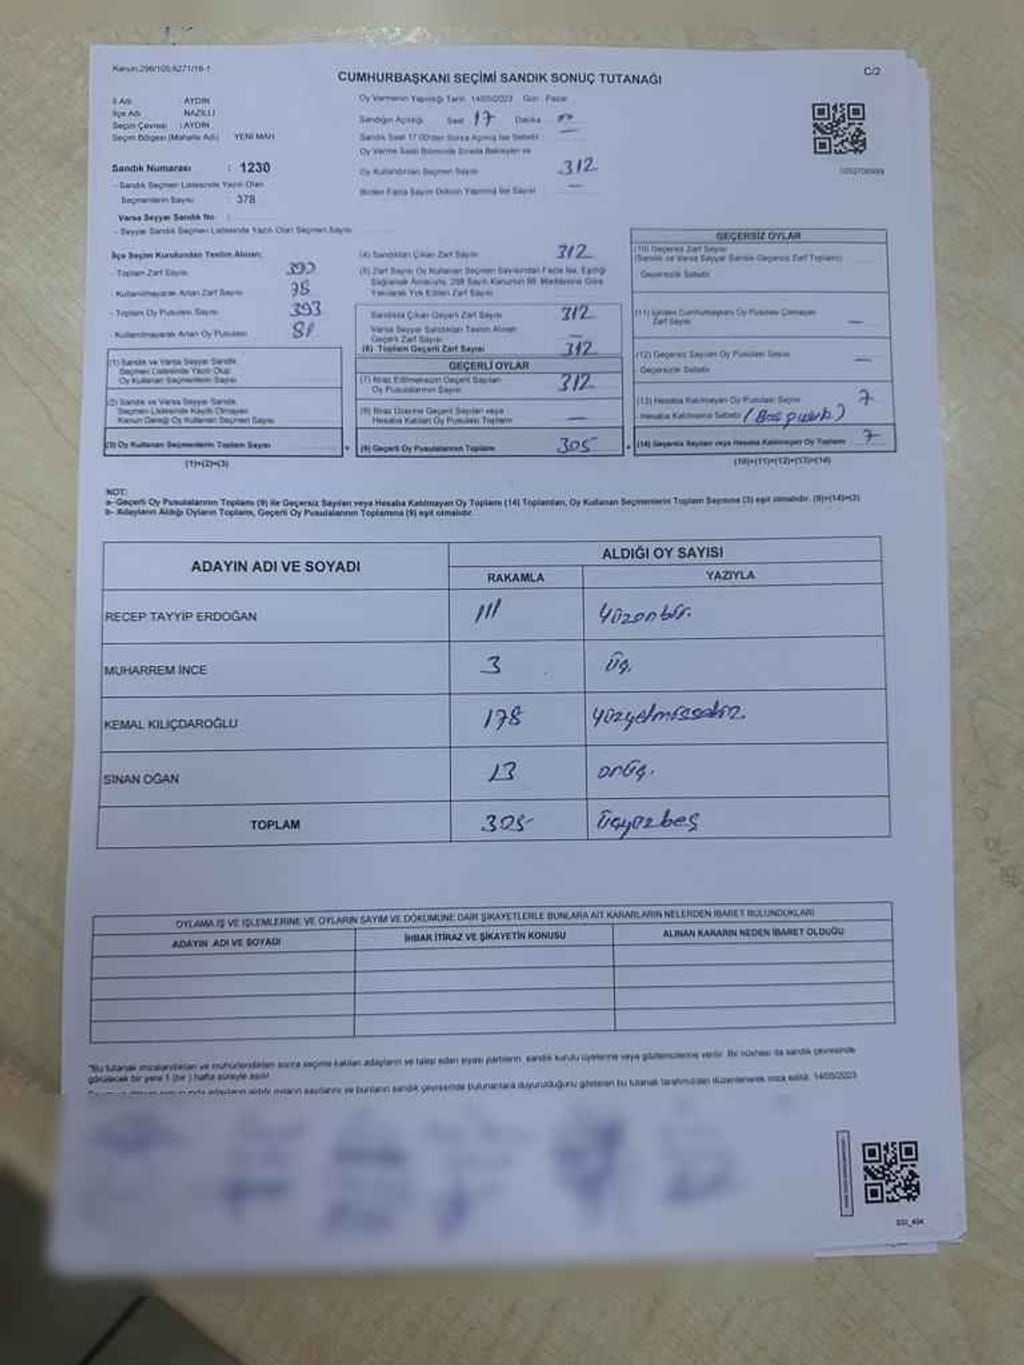 Kanun:298/105,6271/18-1
C/2
CUMHURBAŞKANI SEÇİMİ SANDIK SONUÇ TUTANAĞI
İl Adı : AYDIN
İlçe Adı : NAZİLLİ
Seçim Çevresi : AYDIN
Seçim Bölgesi (Mahalle Adı) YENİ MAH.
Sandık Numarası : 1230
- Sandık Seçmen Listesinde Yazılı Olan
Seçmenlerin Sayısı : 378
Varsa Seyyar Sandık No :
- Seyyar Sandık Seçmen Listesinde Yazılı Olan Seçmen Sayısı
Oy Vermenin Yapıldığı Tarih 14/05/2023 Gün : Pazar
Sandığın Açıldığı Saat 17 Dakika
Sandık Saat 17.00'den Sonra Açılmış İse Sebebi
Oy Verme Saati Bitiminde Sırada Bekleyen ve
Oy Kullandırılan Seçmen Sayısı 312
Birden Fazla Sayım Döküm Yapılmış İse Sayısı —
İlçe Seçim Kurulundan Teslim Alınan;
- Toplam Zarf Sayısı
- Kullanılmayarak Artan Zarf Sayısı 78
- Toplam Oy Pusulası Sayısı 393
- Kullanılmayarak Artan Oy Pusulası 81
(1) Sandık ve Varsa Seyyar Sandık
Seçmen Listesinde Yazılı Olup
Oy Kullanan Seçmenlerin Sayısı
(2) Sandık ve Varsa Seyyar Sandık
Seçmen Listesinde Kayıtlı Olmayan
Kanun Gereği Oy Kullanan Seçmen Sayısı
(3) Oy Kullanan Seçmenlerin Toplam Sayısı
(1)+(2)=(3)
(4) Sandıktan Çıkan Zarf Sayısı 312
(5) Zarf Sayısı Oy Kullanan Seçmen Sayısından Fazla İse, Eşitliği
Sağlamak Amacıyla, 298 Sayılı Kanunun 98. Maddesine Göre
Yakılarak Yok Edilen Zarf Sayısı
Sandıkta Çıkan Geçerli Zarf Sayısı 312
Varsa Seyyar Sandıktan Teslim Alınan
Geçerli Zarf Sayısı —
(6) Toplam Geçerli Zarf Sayısı 312
GEÇERLİ OYLAR
(7) İtiraz Edilmeksizin Geçerli Sayılan
Oy Pusulalarının Sayısı 312
(8) İtiraz Üzerine Geçerli Sayılan veya
Hesaba Katılan Oy Pusulası Toplamı —
(9) Geçerli Oy Pusulalarının Toplamı 305
GEÇERSİZ OYLAR
(10) Geçersiz Zarf Sayısı
(Sandık ve Varsa Seyyar Sandık Geçersiz Zarf Toplamı)
Geçersizlik Sebebi
(11) İçinden Cumhurbaşkanı Oy Pusulası Çıkmayan
Zarf Sayısı —
(12) Geçersiz Sayılan Oy Pusulası Sayısı —
Geçersizlik Sebebi
(13) Hesaba Katılmayan Oy Pusulası Sayısı 7
Hesaba Katılmama Sebebi (Boş pusula)
(14) Geçersiz Sayılan veya Hesaba Katılmayan Oy Toplamı 7
(10)+(11)+(12)+(13)=(14)
NOT:
a- Geçerli Oy Pusulalarının Toplamı (9) ile Geçersiz Sayılan veya Hesaba Katılmayan Oy Toplamı (14) Toplamları, Oy Kullanan Seçmenlerin Toplam Sayısına (3) eşit olmalıdır. (9)+(14)=(3)
b- Adayların Aldığı Oyların Toplamı, Geçerli Oy Pusulalarının Toplamına (9) eşit olmalıdır.
ADAYIN ADI VE SOYADI
ALDIĞI OY SAYISI
RAKAMLA YAZIYLA
RECEP TAYYİP ERDOĞAN 111 Yüzonbir.
MUHARREM İNCE 3 Üç.
KEMAL KILIÇDAROĞLU 178 Yüzyetmişsekiz.
SİNAN OĞAN 13 onüç.
TOPLAM 305 Üçyüzbeş
OYLAMA İŞ VE İŞLEMLERİNE VE OYLARIN SAYIM VE DÖKÜMÜNE DAİR ŞİKAYETLERLE BUNLARA AİT KARARLARIN NELERDEN İBARET BULUNDUKLARI
ADAYIN ADI VE SOYADI İHBAR İTİRAZ VE ŞİKAYETİN KONUSU ALINAN KARARIN NEDEN İBARET OLDUĞU
"Bu tutanak imzalandıktan ve mühürlendikten sonra seçime katılan adayların ve talep eden siyasi partilerin, sandık kurulu üyelerine veya gözlemcilerine verilir. Bir nüshası da sandık çevresinde
görülecek bir yere 1 (bir) hafta süreyle asılır.
adayların aldığı oyların sayılarını ve bunların sandık çevresinde bulunanlara duyurulduğunu gösteren bu tutanak tarafımızdan düzenlenerek imza edildi. 14/05/2023